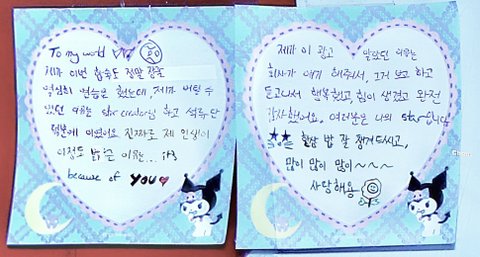 To my world
제가 이번 활동도 정말 많죠
열심히 연습은 했는데 제가 버틸 수
있던 이유는 star creator님 하고 석류단
덕분에 이였어요 진짜로 제 인생이
이정도 밝은 이유는...
because of YOU
제가 이 광고 알았던 이유는
회사가 얘기 해줘서, 그거 보고 하고
듣고나서 행복했고, 힘이 생겼고 완전
감사했어요, 여러분은 나의 star입니다
항상 밥 잘 챙겨드시고,
많이 많이 많이~~~
사랑해용